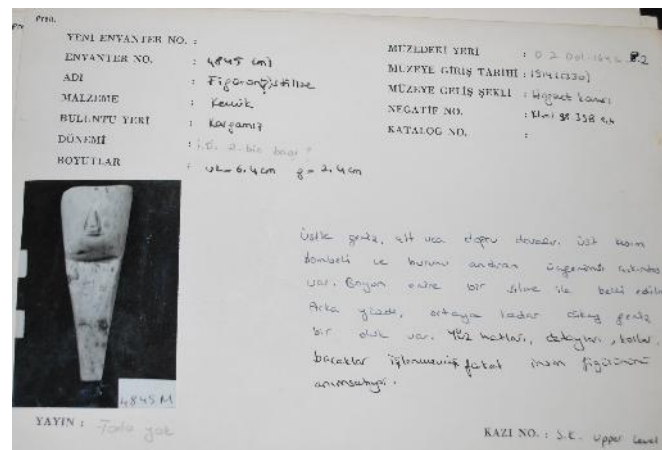 Pren.
YENİ ENVANTER NO. :
ENVANTER NO. : 4845 (M)
ADI : Figürün, stilize
MALZEME : Kemik
BULUNTU YERİ : Kargamış
DÖNEMİ : İ.Ö. 2. bin başı ?
BOYUTLAR : uk= 6.4cm g= 2.4cm
MÜZEDEKİ YERİ :
MÜZEYE GİRİŞ TARİHİ : 1914 (1330)
MÜZEYE GELİŞ ŞEKLİ :
NEGATİF NO. :
KATALOG NO. :
Üstte geniş, alt uca doğru daralır. Üst kısım
bombeli ve burunu andıran üçgenimsi çıkıntısı
var. Boyun enine bir silme ile belli edilmiş
Arka yüzde, ortaya kadar dikey geniş
bir oluk var. Yüz hatları, detayları, kollar,
bacaklar işlenmemiş fakat insan figürünü
anımsatıyor.
4845 M
YAYIN : Foto yok
KAZI NO. : S.E. Upper Level